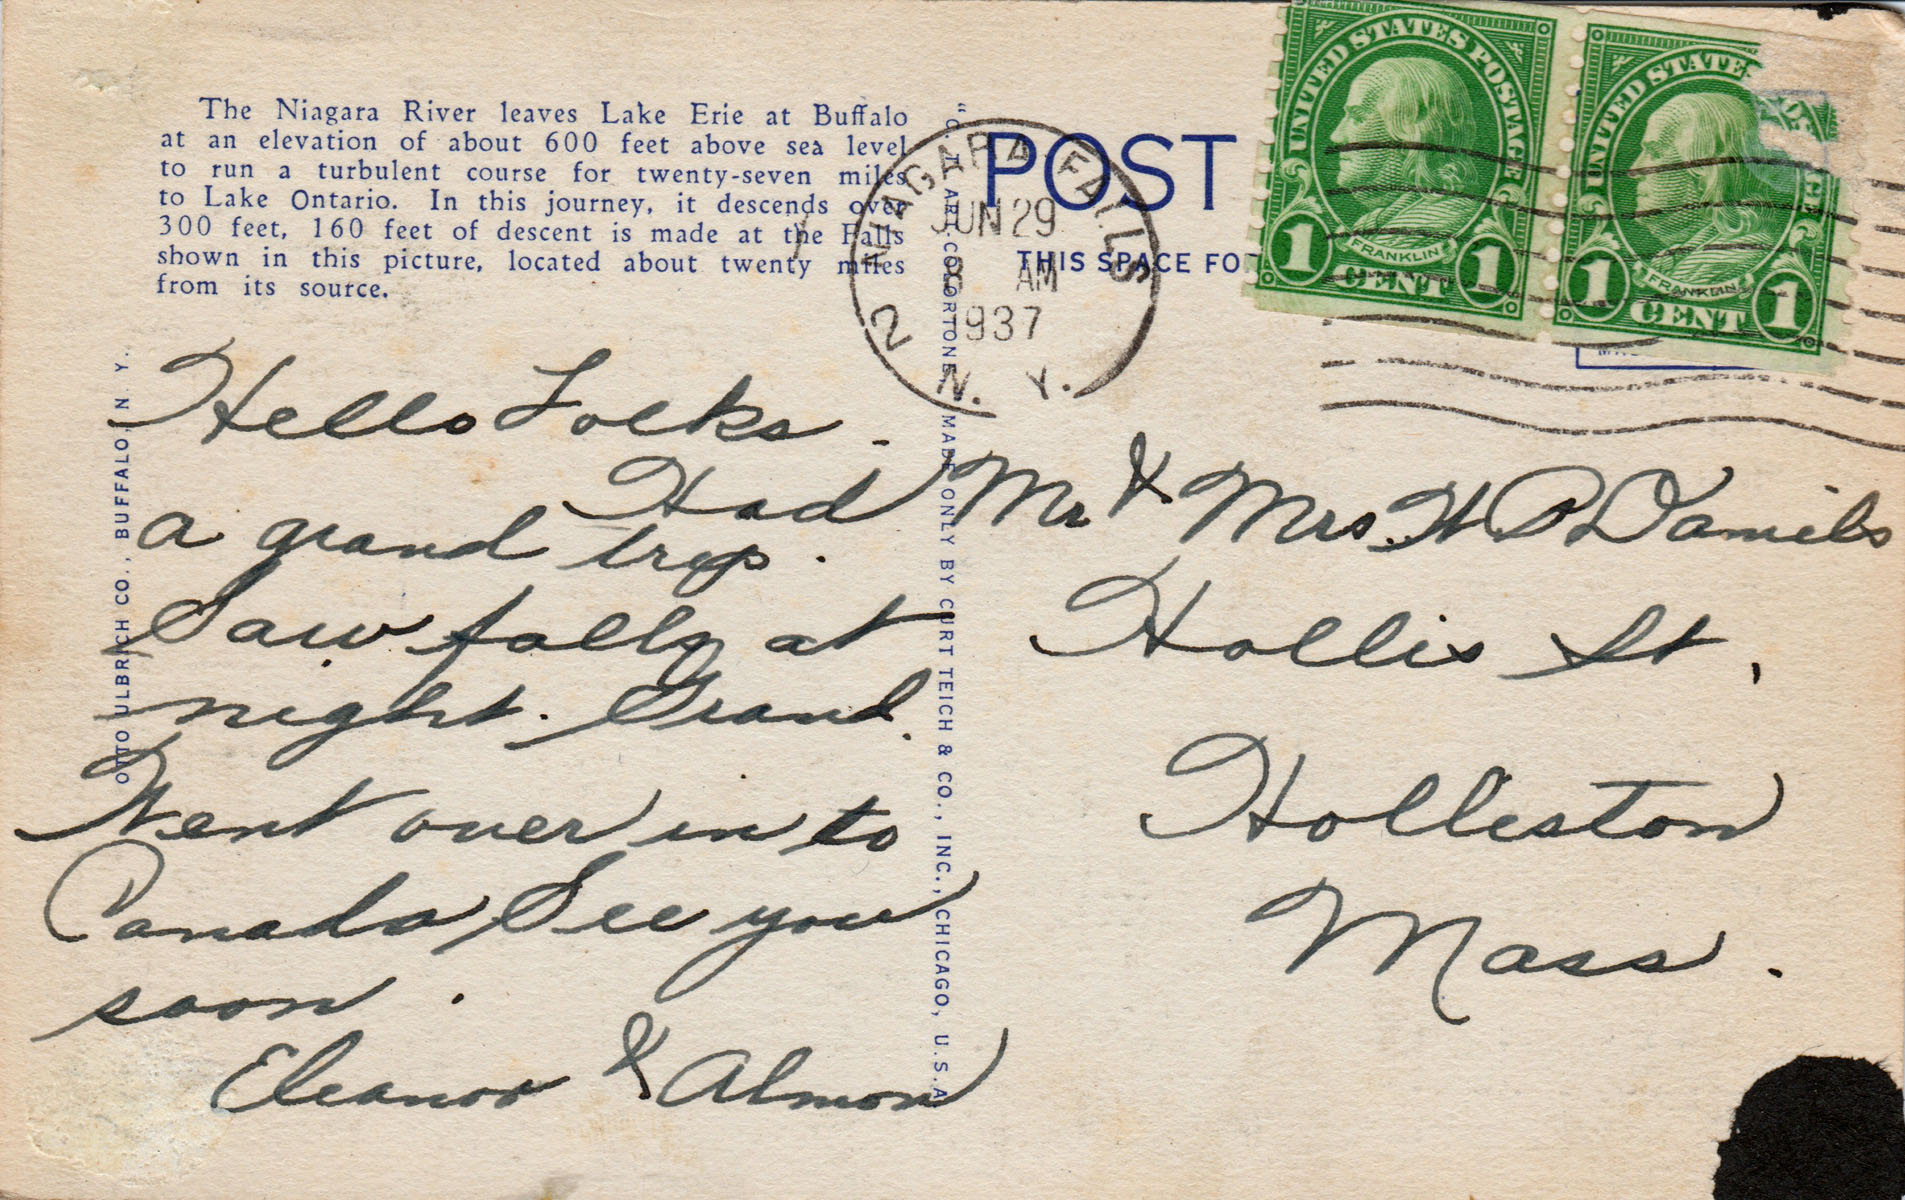 The Niagara River leaves Lake Erie at Buffalo
at an elevation of about 600 feet above sea level
to run a turbulent course for twenty-seven miles
to Lake Ontario. In this journey, it descends over
300 feet, 160 feet of descent is made at the Falls
shown in this picture, located about twenty miles
from its source.
Hello Folks.
Had
a grand trip.
Saw falls at
night. Grand.
Went over in to
Canada, See you
soon.
Eleanor & Almon
OTTO ULBRICH CO., BUFFALO, N. Y.
"C. T. ART-COLORTONE" MADE ONLY BY CURT TEICH & CO., INC., CHICAGO, U.S.A.
POST
THIS SPACE FO
NIAGARA FALLS
JUN 29
8 AM
1937
2
N. Y.
UNITED STATES POSTAGE
FRANKLIN
1 CENT 1
UNITED STATE
FRANKLIN
1 CENT 1
Mr & Mrs. H P Daniels
Hollis St,
Holliston
Mass.